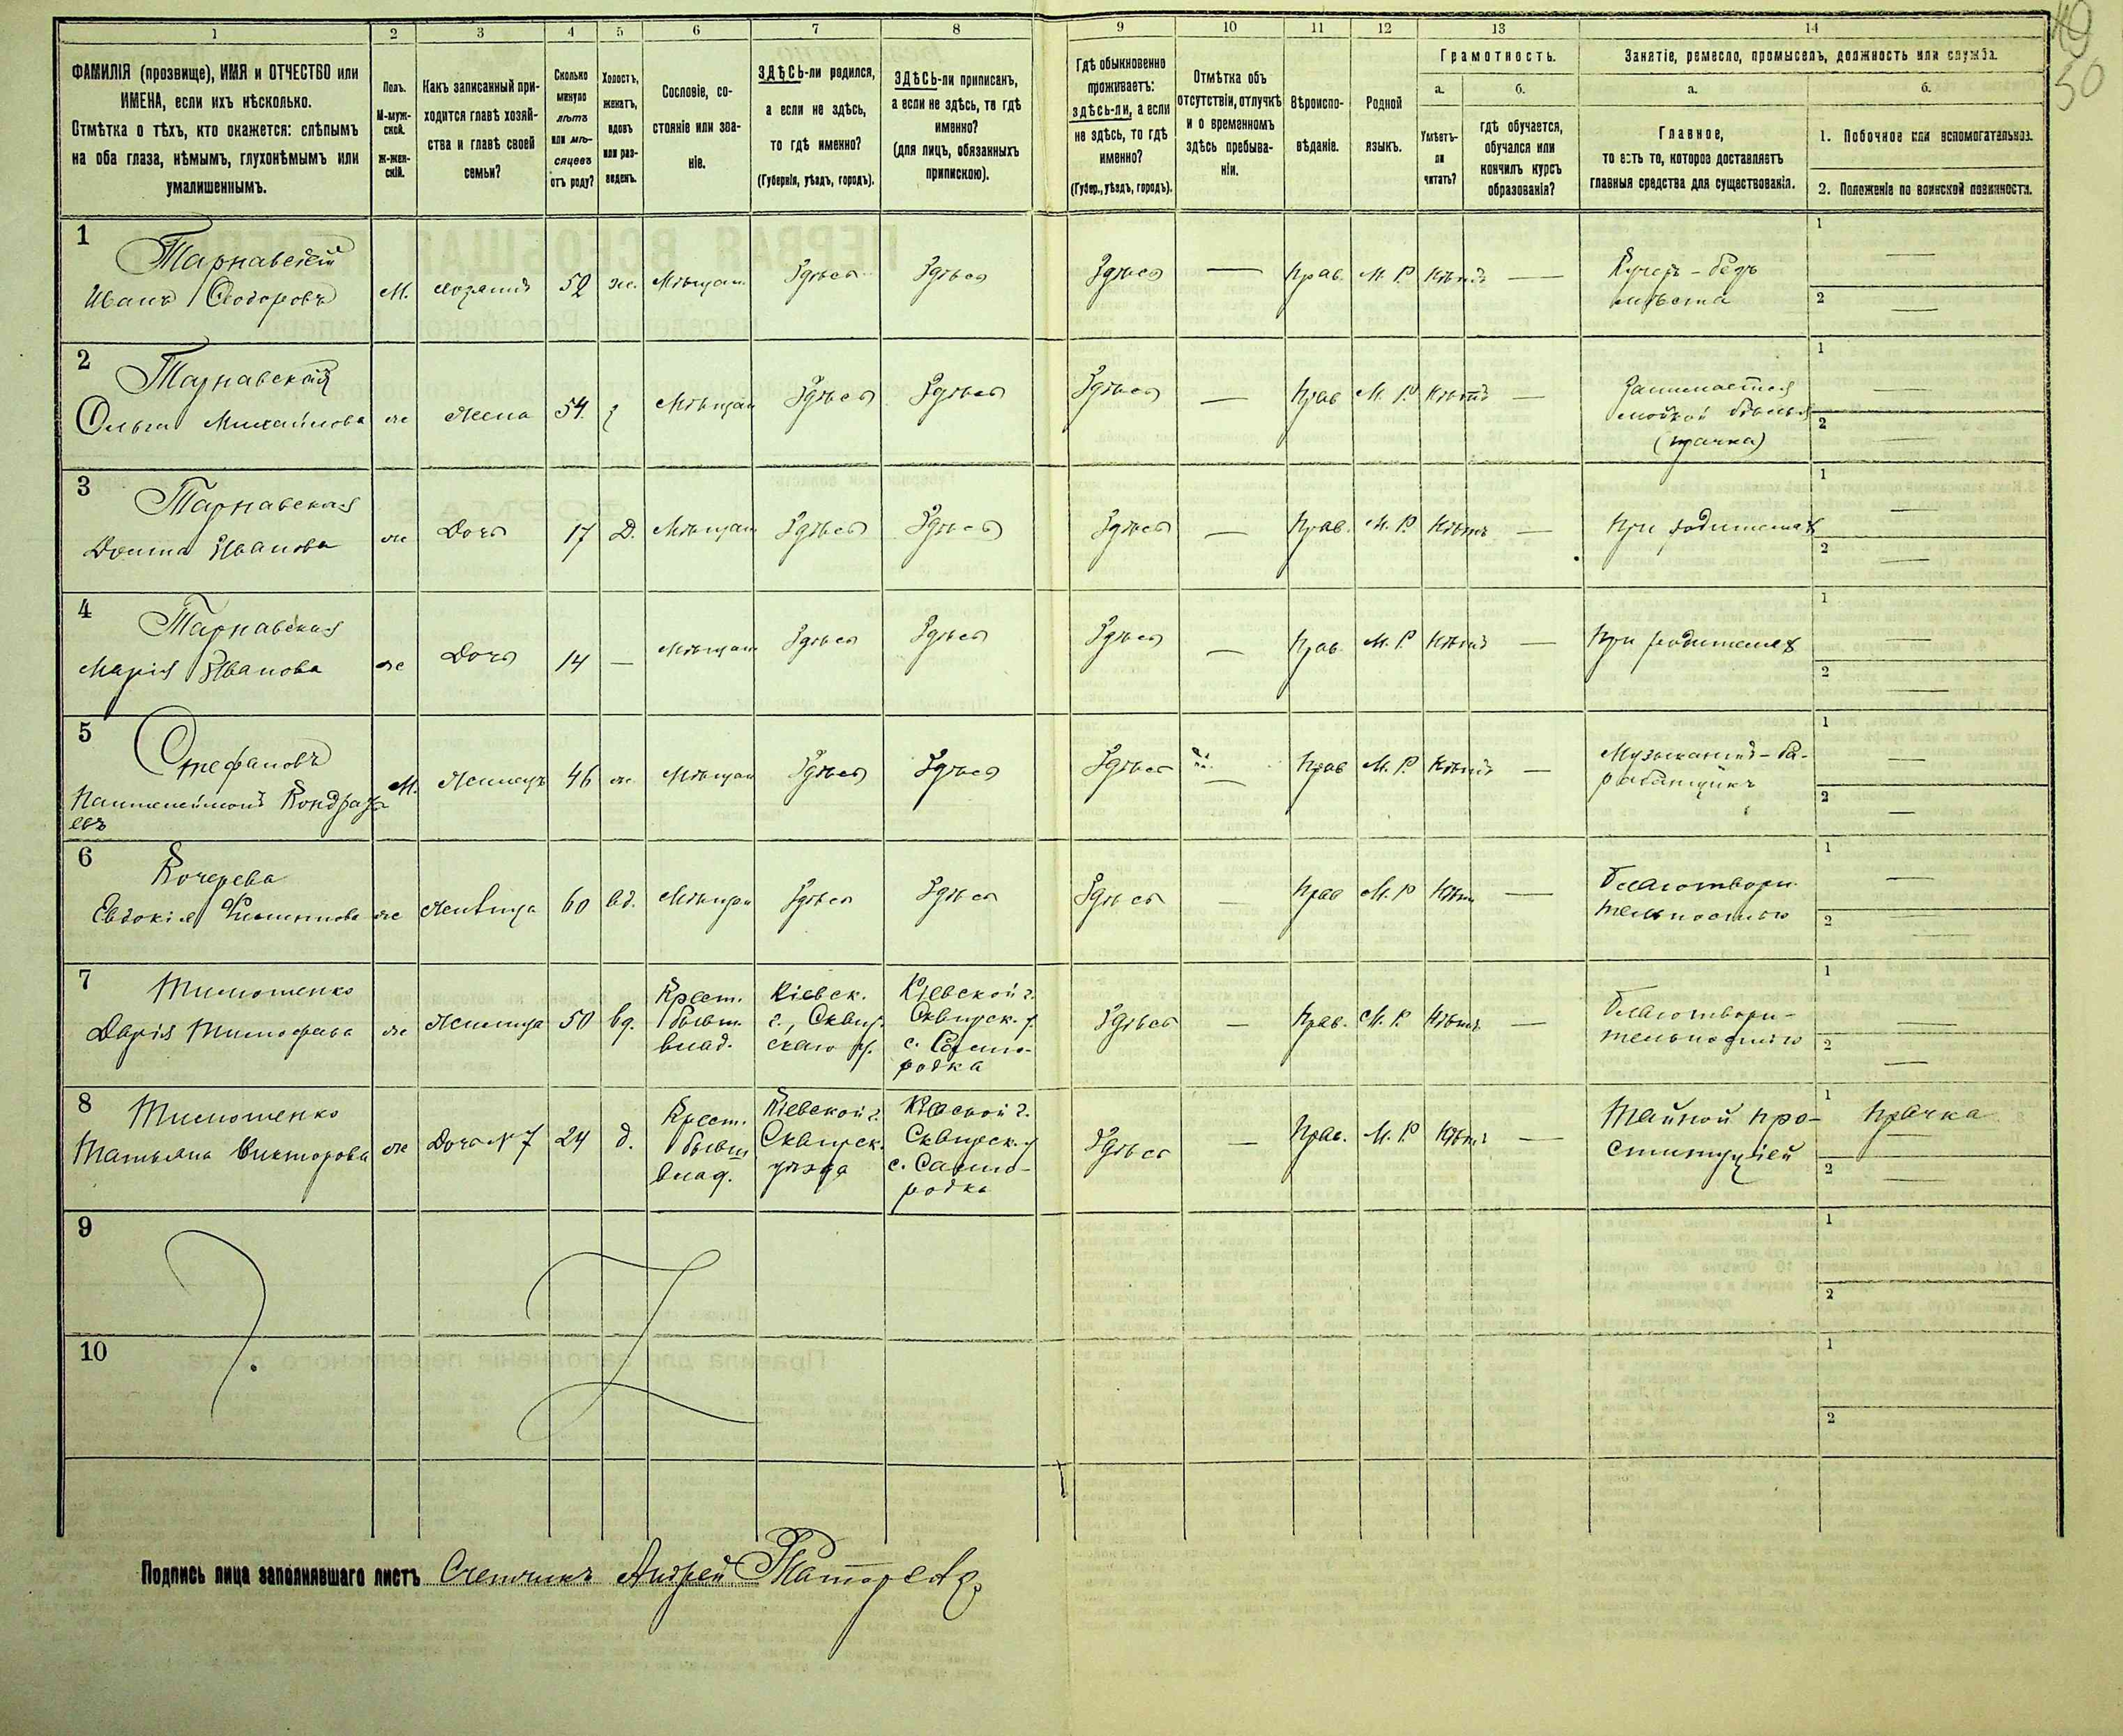 49
50
1 2 3 4 5 6 7 8 9 10 11 12 13 14
ФАМИЛІЯ (прозвище), ИМЯ и ОТЧЕСТВО или
ИМЕНА, если ихъ нѣсколько.
Отмѣтка о тѣхъ, кто окажется: слѣпымъ
на оба глаза, нѣмымъ, глухонѣмымъ или
умалишеннымъ.
Полъ.
М-муж-
ской.
Ж-жен-
скій.
Какъ записанный при-
ходится главѣ хозяй-
ства и главѣ своей
семьи?
Сколько
минуло
лѣтъ
или мѣ-
сяцевъ
отъ роду?
Холостъ,
женатъ,
вдовъ
или раз-
веденъ.
Сословіе, со-
стояніе или зва-
ніе.
ЗДѢСЬ-ли родился,
а если не здѣсь,
то гдѣ именно?
(Губернія, уѣздъ, городъ).
ЗДѢСЬ-ли приписанъ,
а если не здѣсь, то гдѣ
именно?
(для лицъ, обязанныхъ
припискою).
Гдѣ обыкновенно
проживаетъ:
здѣсь-ли, а если
не здѣсь, то гдѣ
именно?
(Губер., уѣздъ, городъ).
Отмѣтка объ
отсутствіи, отлучкѣ
и о временномъ
здѣсь пребыва-
ніи.
Вѣроиспо-
вѣданіе.
Родной
языкъ.
Грамотность.
а.
Умѣетъ-
ли
читать?
б.
гдѣ обучается,
обучался или
кончилъ курсъ
образованія?
Занятіе, ремесло, промыселъ, должность или служба.
а.
Главное,
то есть то, которое доставляетъ
главныя средства для существованія.
б.
1. Побочное или вспомогательное.
2. Положеніе по воинской повинности.
1
Тарнавскій
Иванъ Ѳеодоровъ
М. хозяинъ 52 ж. Мѣщан. Здѣсь Здѣсь Здѣсь — Прав. М. Р. Нѣтъ —
Кучеръ – безъ
мѣста
1 —
2 —
2
Тарнавская
Ольга Михайлова
ж Жена 54 з Мѣщан Здѣсь Здѣсь Здѣсь — Прав М. Р Нѣтъ —
Занимается
мойкой бѣлья
(прачка)
1 —
2 —
3
Тарнавская
Домна Иванова
ж Дочь 17 Д. Мѣщан Здѣсь Здѣсь Здѣсь — Прав. М. Р. Нѣтъ —
При родителях
1 —
2 —
4
Тарнавская
Марія Иванова
ж Дочь 14 — Мѣщан Здѣсь Здѣсь Здѣсь — Прав. М. Р Нѣтъ —
При родителях
1 —
2 —
5
Стефановъ
Пантелеймонъ Кондрать
евъ
М. Жилецъ 46 ж. Мѣщан Здѣсь Здѣсь Здѣсь — Прав М. Р. Нѣтъ —
Музыкантъ – ба-
рабанщикъ
1 —
2 —
6
Кочерева
Евдокія Филиппова
ж Жилица 60 вд. Мѣщан Здѣсь Здѣсь Здѣсь — Прав М. Р Нѣтъ —
Благотвори
тельностью
1 —
2 —
7
Тимошенко
Дарія Тимофѣева
ж Жилица 50 вд.
Крест.
бывш.
влад.
Кіевск.
г., Сквир-
скаго у.
Кіевской г.
Сквирск. у.
с. Самго-
родка
Здѣсь — Прав. М. Р. Нѣтъ —
Благотвори-
тельностію
1 —
2 —
8
Тимошенко
Татьяна Викторова
ж Дочь № 7 24 д.
Крест.
бывш
влад.
Кіевской г.
Сквирск.
уѣзда
Кіевской г.
Сквирск. у
с. Самго-
родка
Здѣсь — Прав. М. Р Нѣтъ —
Тайной про-
ституціей
1 Прачка
2 —
9
1
2
10
1
2
Подпись лица заполнявшаго листъ Счетчикъ Андрей